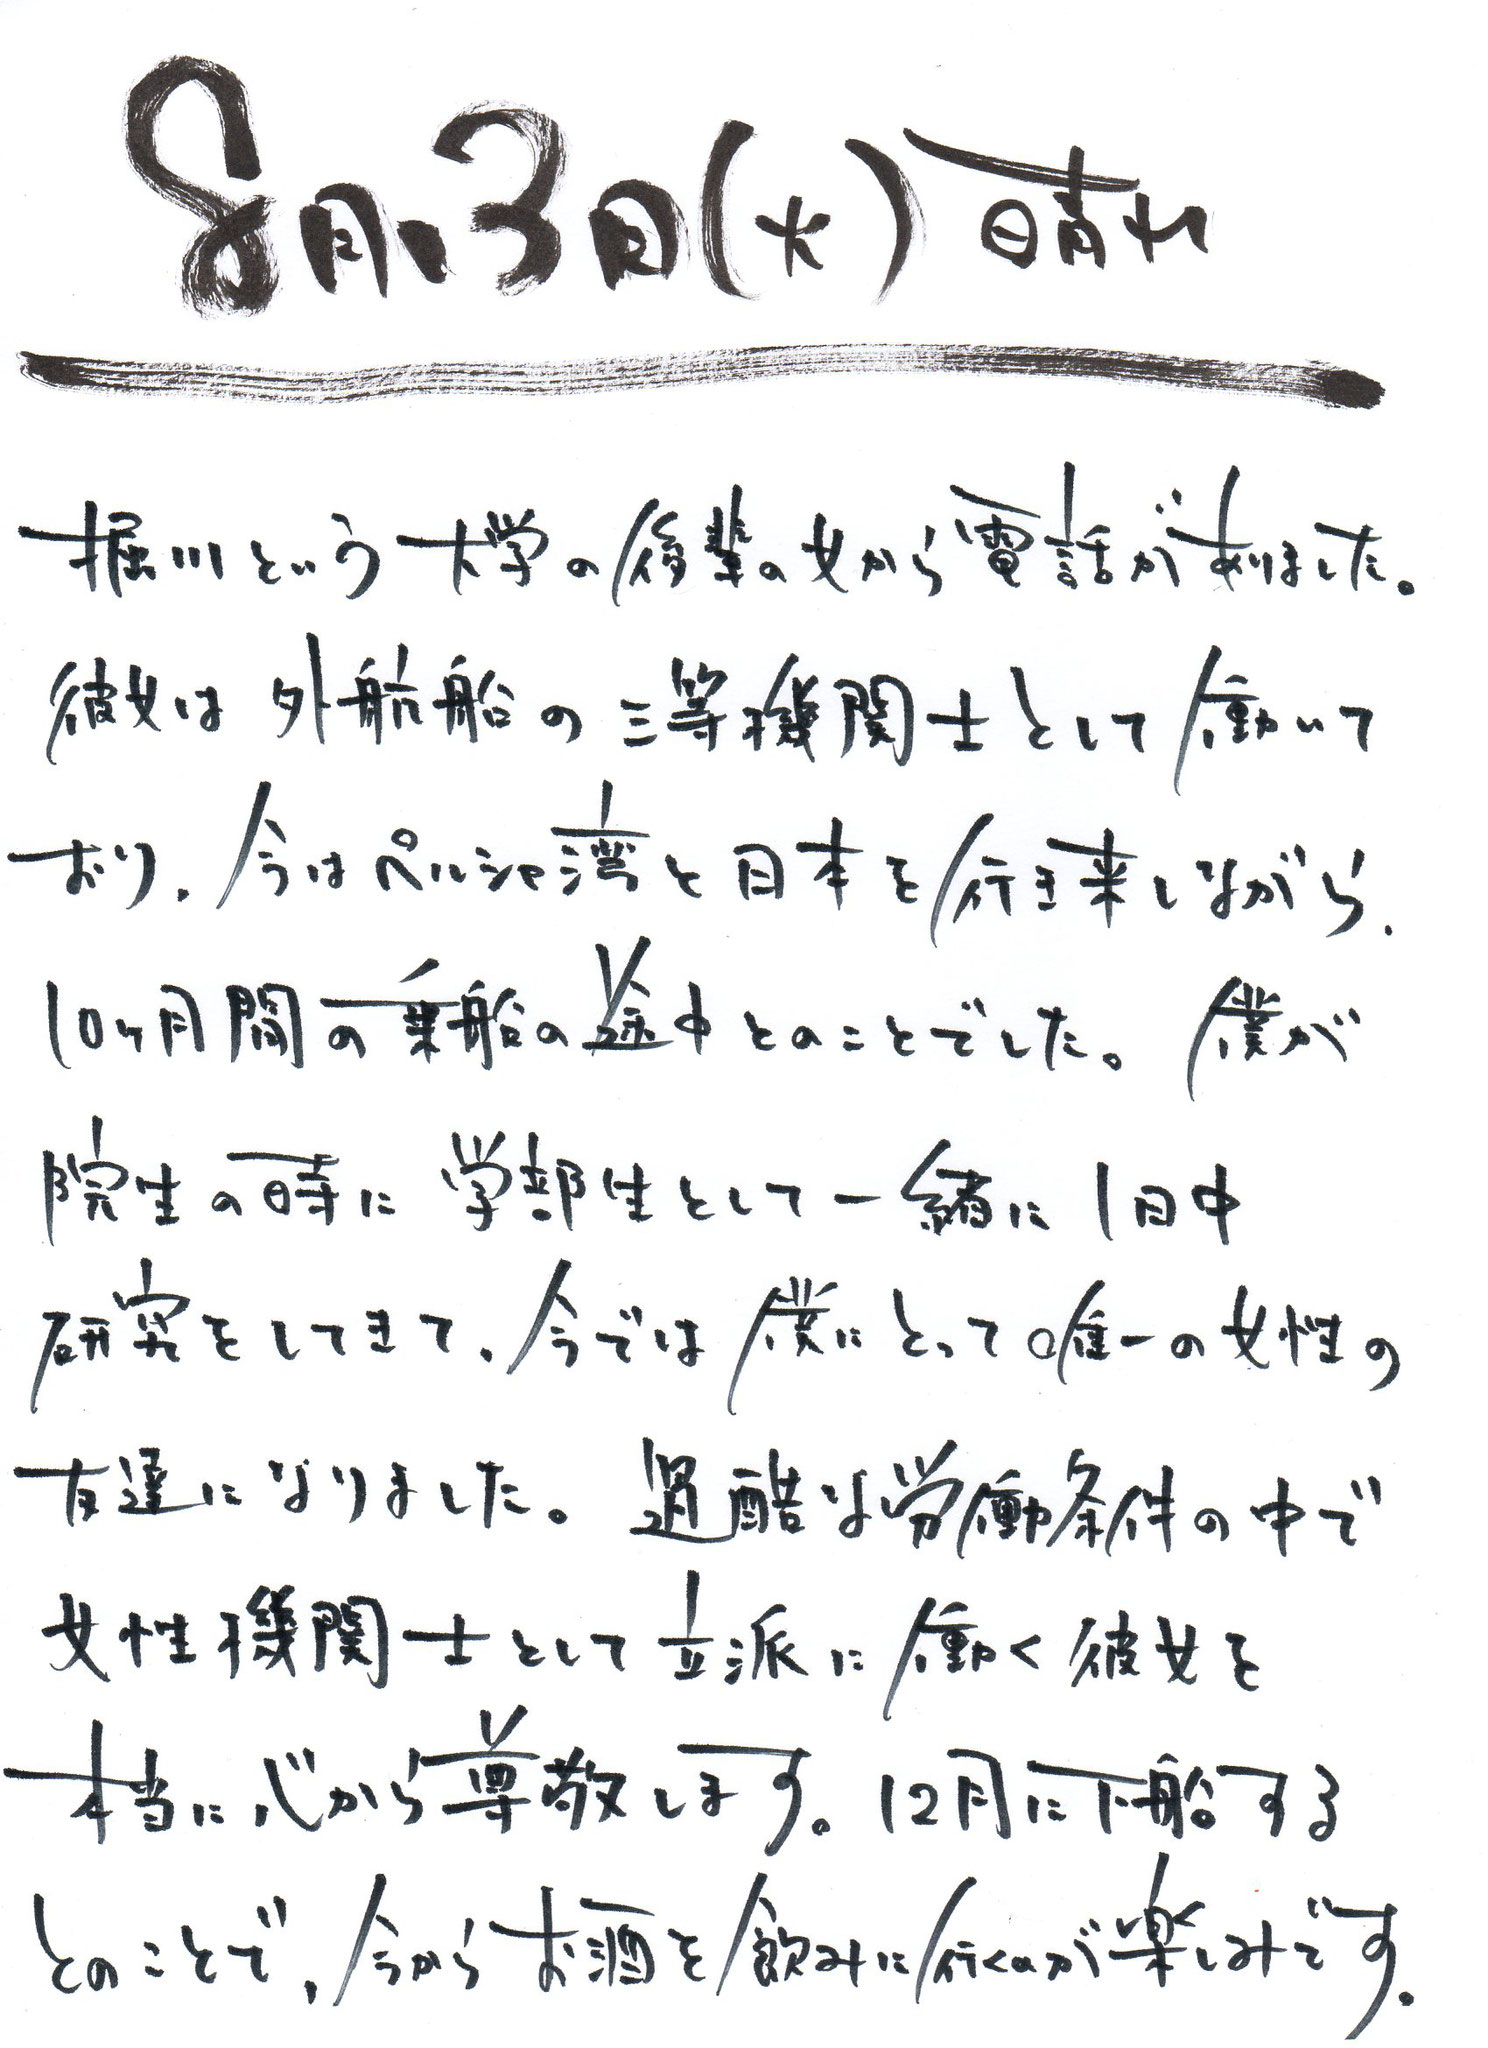 8月3日(火) 晴れ
堀川という大学の後輩の女から電話がありました。
彼女は外航船の三等機関士として働いて
おり、今はペルシャ湾と日本を行き来しながら、
10ヶ月間の乗船の途中とのことでした。僕が
院生の時に学部生として一緒に1日中
研究をしてきて、今では僕にとって唯一の女性の
友達になりました。過酷な労働条件の中で
女性機関士として立派に働く彼女を
本当に心から尊敬します。12月に下船する
とのことで、今からお酒を飲みに行くのが楽しみです。